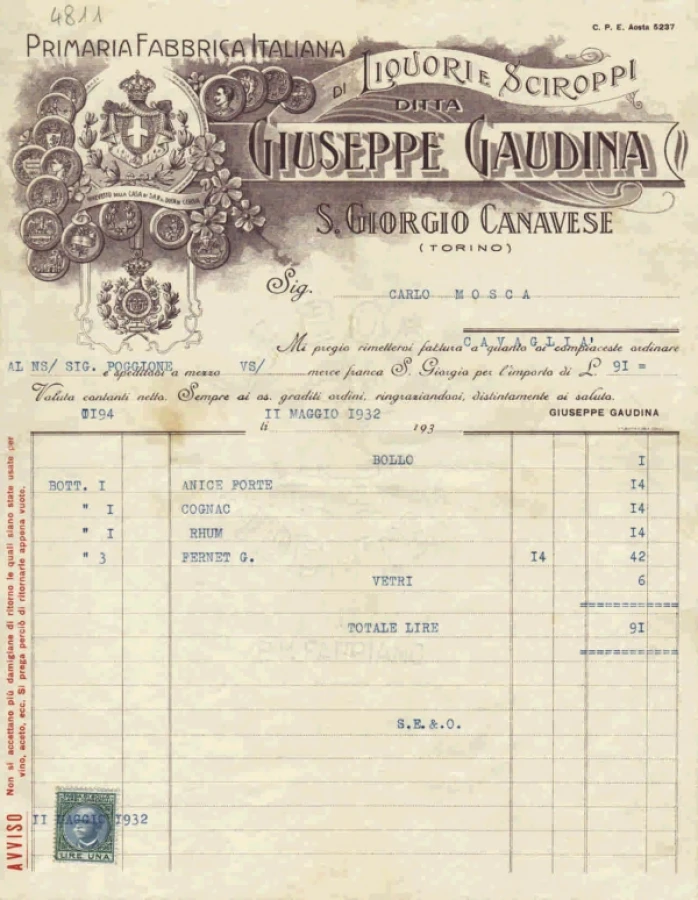 4811
C. P. E. Aosta 5237
PRIMARIA FABBRICA ITALIANA
DI LIQUORI E SCIROPPI
DITTA
GIUSEPPE GAUDINA
S. GIORGIO CANAVESE
(TORINO)
Sig. CARLO MOSCA
CAVAGLIA'
Mi pregio rimettervi fattura a quanto vi compiaceste ordinare
AL NS/ SIG. POGGIONE VS/
e speditovi a mezzo merce franca S. Giorgio per l'importo di L. 91 =
Valuta contanti netto. Sempre ai vs. graditi ordini, ringraziandovi, distintamente vi saluto.
II MAGGIO I932
GIUSEPPE GAUDINA
li 193
BOLLO I
BOTT. I ANICE FORTE I4
" I COGNAC I4
" I RHUM I4
" 3 FERNET G. I4 42
VETRI 6
TOTALE LIRE 9I
S.E.&.O.
II MAGGIO I932
LIRE UNA
AVVISO Non si accettano più damigiane di ritorno le quali siano state usate per
vino, aceto, ecc. Si prega perciò di ritornarle appena vuote.